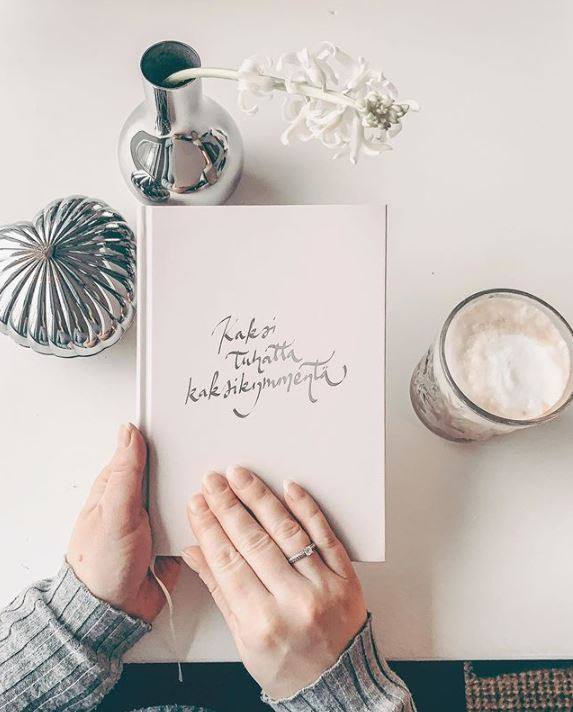 Kaksi
tuhatta
kaksikymmentä